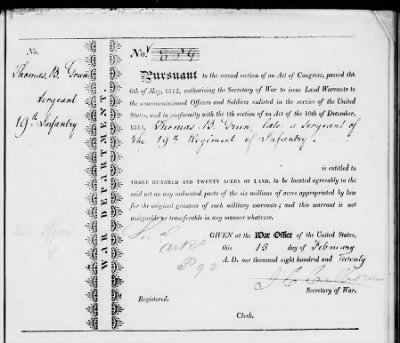 No.
Thomas B. Green
Sergeant
19th Infantry
WAR DEPARTMENT.
No. 
Pursuant to the second section of an Act of Congress, passed the
6th of May, 1812, authorising the Secretary of War to issue Land Warrants to
the noncommissioned Officers and Soldiers enlisted in the service of the United
States, and in conformity with the 4th section of an Act of the 10th of December,
1814, Thomas B. Green, late a Sergeant of
the 19th Regiment of Infantry.
is entitled to
THREE HUNDRED AND TWENTY ACRES OF LAND, to be located agreeably to the
said act on any unlocated parts of the six millions of acres appropriated by law
for the original grantees of such military warrants; and this warrant is not
assignable or transferable in any manner whatever.
GIVEN at the War Office of the United States,
this 15 day of February
A. D. one thousand eight hundred and Twenty
J C Calhoun
Secretary of War.
Registered.
Clerk.